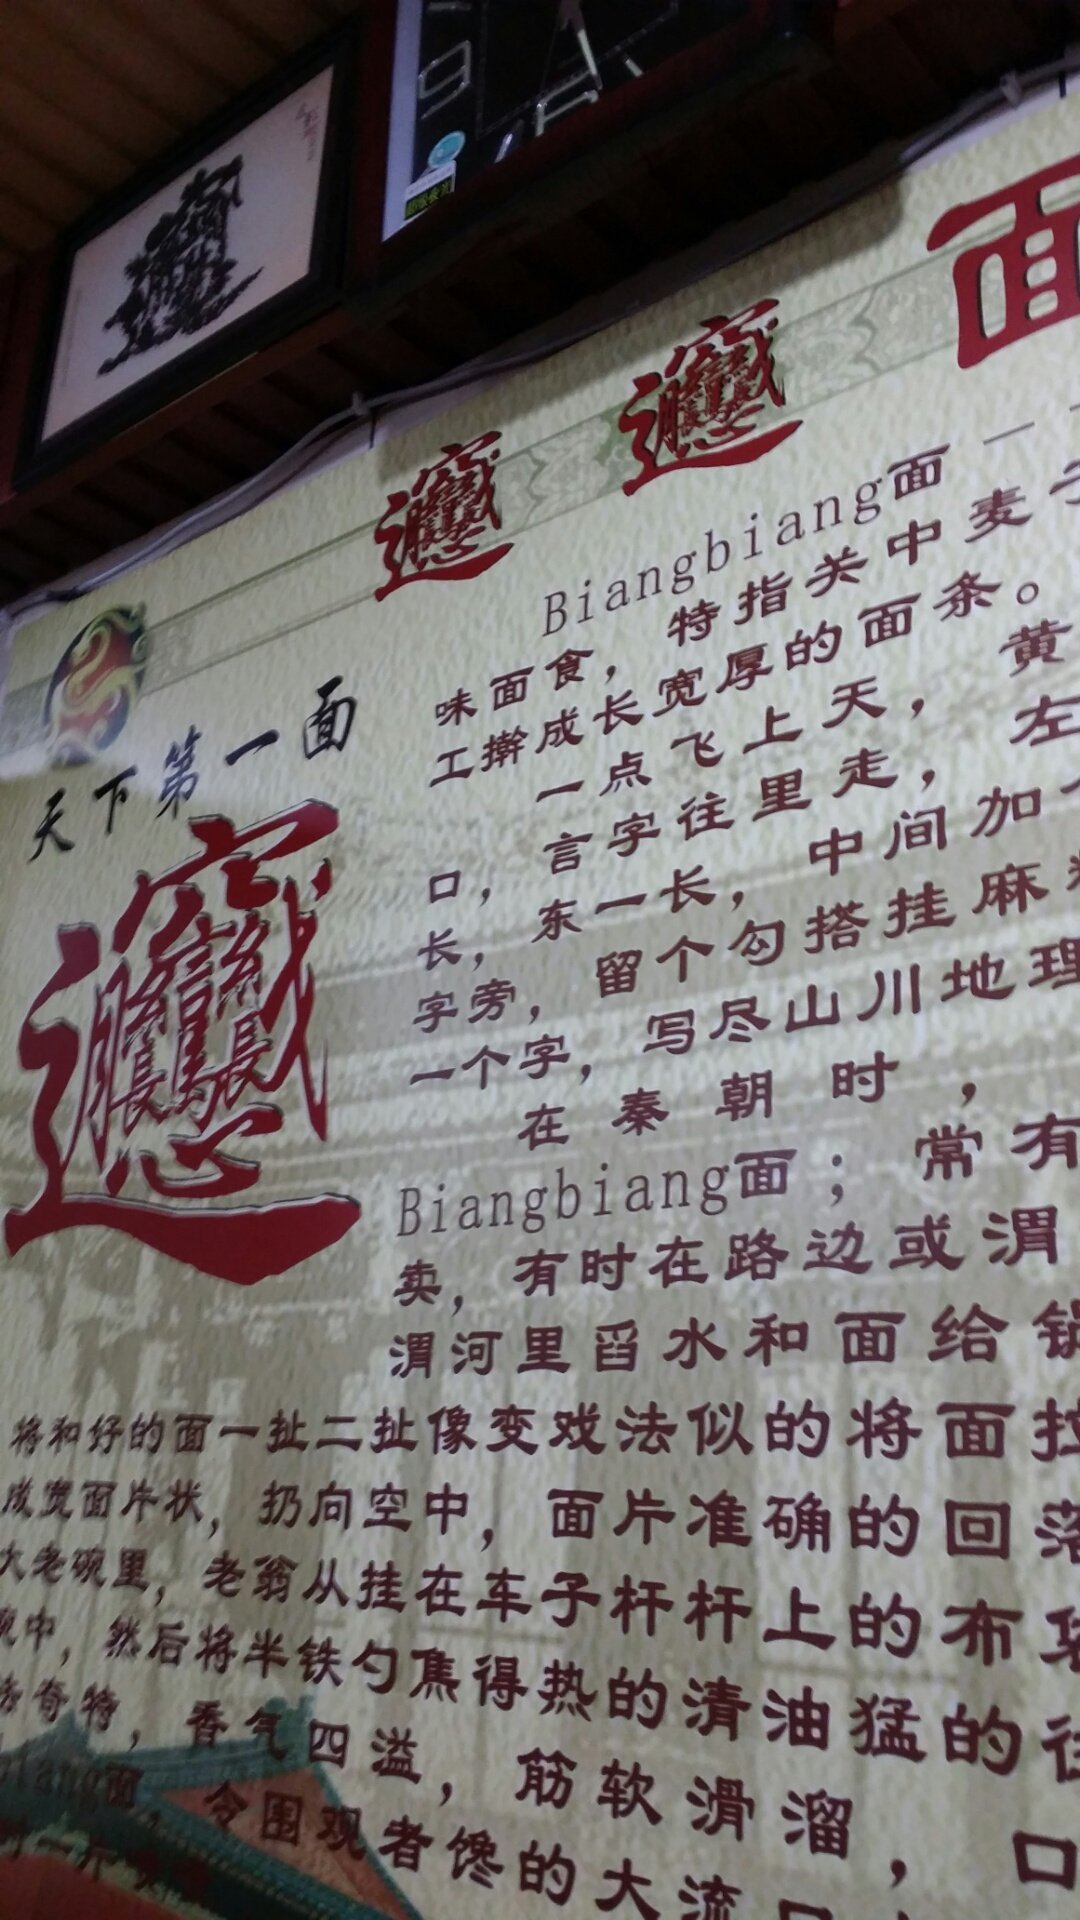 𰻝𰻝面
天下第一面
𰻝
Biangbiang面一
味面食，特指关中麦子
工擀成长宽厚的面条。
一点飞上天，黄
口，言字往里走，左
长，东一长，中间加个
字旁，留个勾搭挂麻糖
一个字，写尽山川地理
在秦朝时，
Biangbiang面；常有
卖，有时在路边或渭
渭河里舀水和面给锅
将和好的面一扯二扯像变戏法似的将面拉
成宽面片状，扔向空中，面片准确的回落
大老碗里，老翁从挂在车子杆杆上的布袋
碗中，然后将半铁勺焦得热的清油猛的往
奇特，香气四溢，筋软滑溜，口
biang面，令围观者馋的大流口